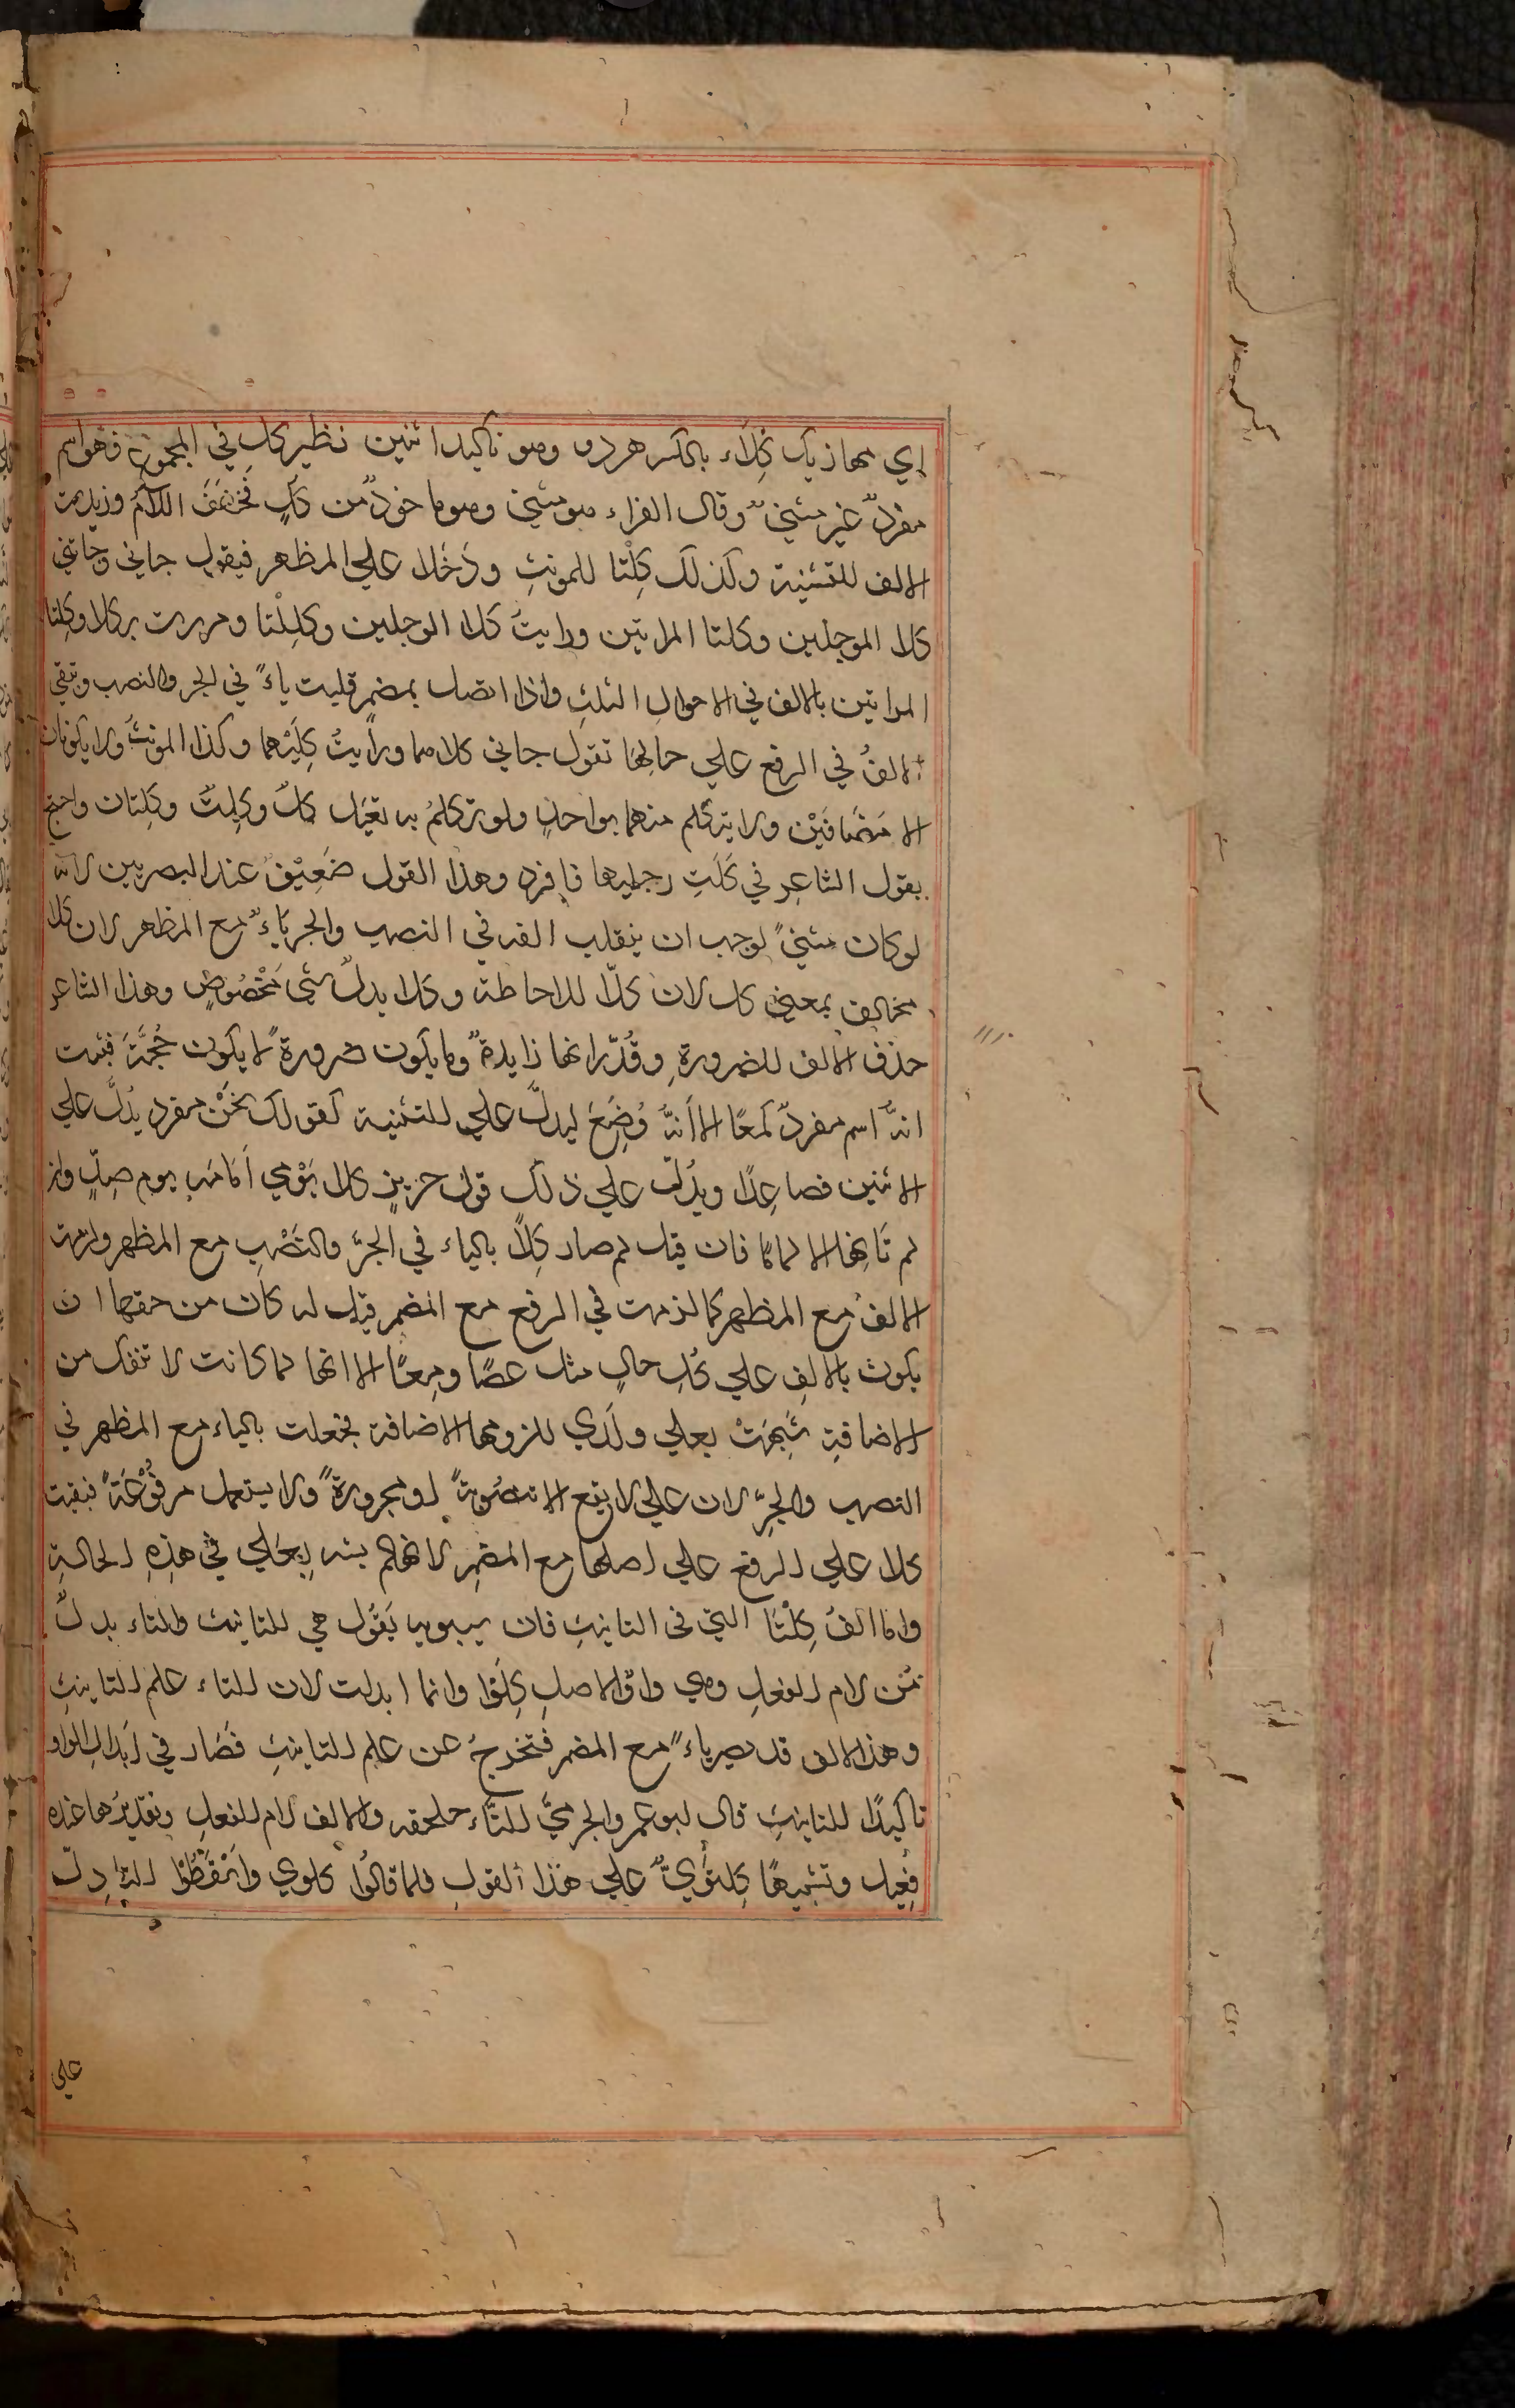 اي مجاز يك كِلَاء بالكسر هر دو وهو تاكيد اثنين نظير كلِ في المجموع فهو اسم
مفردٌ غير مثنيً وقال الفراء هو مثني وهو ماخوذٌ من كلٍ فخففَ اللامُ وزيدت
الالف للتثنية وكذلك كِلْتا للمونثِ ودَخَلا علي المظهر فيقول جاني وجاتني
كلا الرجلين وكلتا المراتين ورايتُ كلا الرجلين وكلِلْتا ومررت بركلا وكِلتا
المراتين بالالف في الاحوالِ الثلثِ واذا اتصل بمضمر قلبت ياءً في الجر والنصب وتبقي
الالفُ في الرفع علي حالِهَا تقول جاني كلاهما ورأيتُ كِلَيْهما وكذا المونثُ ولا يكونان
الا مَضَافَيْن ولا يتكلم منهما بواحدٍ ولو تكلمُ به لقيل كلٌ وكِلتٌ وكِلتان واحتج
بقول الشاعر في كَلَتِ رجليها فافرد وهذا القول ضَعِيْفٌ عند البصريين لانه
لو كان مثنيً لوجب ان ينقلب الفه في النصب والجر ياءٌ مع المظهر لان كلا
مخالف بمعني كل لان كلّا للاحاطة وكلا يدلُ شي مَخْصُوصٍ وهذا الشاعر
حذفَ الالف للضرورةِ وقُدّر انها زايدةٌ وما يكون ضرورةً لا يكون حُجَّةً فثبت
انهُ اسم مفردٌ كمعًا الا أنهُ وُضِعَ ليدلَّ علي للتثنية كقولك نَحْنُ مفرد يدُلُّ علي
الاثنين فصاعِدًا ويدُلّ علي ذلك قول جريرٍ كلا يَوْمي أمَامَه يوم صدٍّ وان
لم نَاتِها الا لمامًا فان قيل لم صار كِلَا بالياء في الجرّ والنَصْبِ مع المظهر ولزمت
الالفُ مع المظهر كما لزمت في الرفع مع المضمر قيل له كان من حقها ان
يكون بالالفِ علي كلِ حالٍ مثل عصًا ومِعًا الا انها لما كانت لا تنفك من
الاضافةِ شبهتْ بعلي ولَدَي للزومها الاضافة فجعلت بالياء مع المظهر في
النصب والجرِّ لان علي لا يقع الا منصُوبةً او مجرورةً ولا يستعمل مرفُوْعَةً فبقيت
كلا علي الرفع علي اصلها مع المضمِر لانها لم يشبه بِعَلي في هذِهِ الحالةِ
واما الفُ كِلْتَا التي في التانيثِ فان سيبويه يَقُول هي للتانيث والتاء بدلٌ
مِن لام الفعلِ وهي واوٌ الاصلِ كِلَوا وانما ابدلت لان التاء علم التانيثِ
وهذا الالف قد يصير ياءً مع المضمر فتخرجُ عن علم التانيثِ فصَار في اَبدالِ الواو
تاكيدًا للتانيثِ قال ابو عمر والجرميُّ التّاء ملحقه والالف لام الفعلِ وتقديرُها عنده
فِعْيل وتثميهًا كِلتَوُيٌّ علي هذا القولِ فلما قالُوا كلوي وَاسْقَطُوا التّاء دلّ
علي